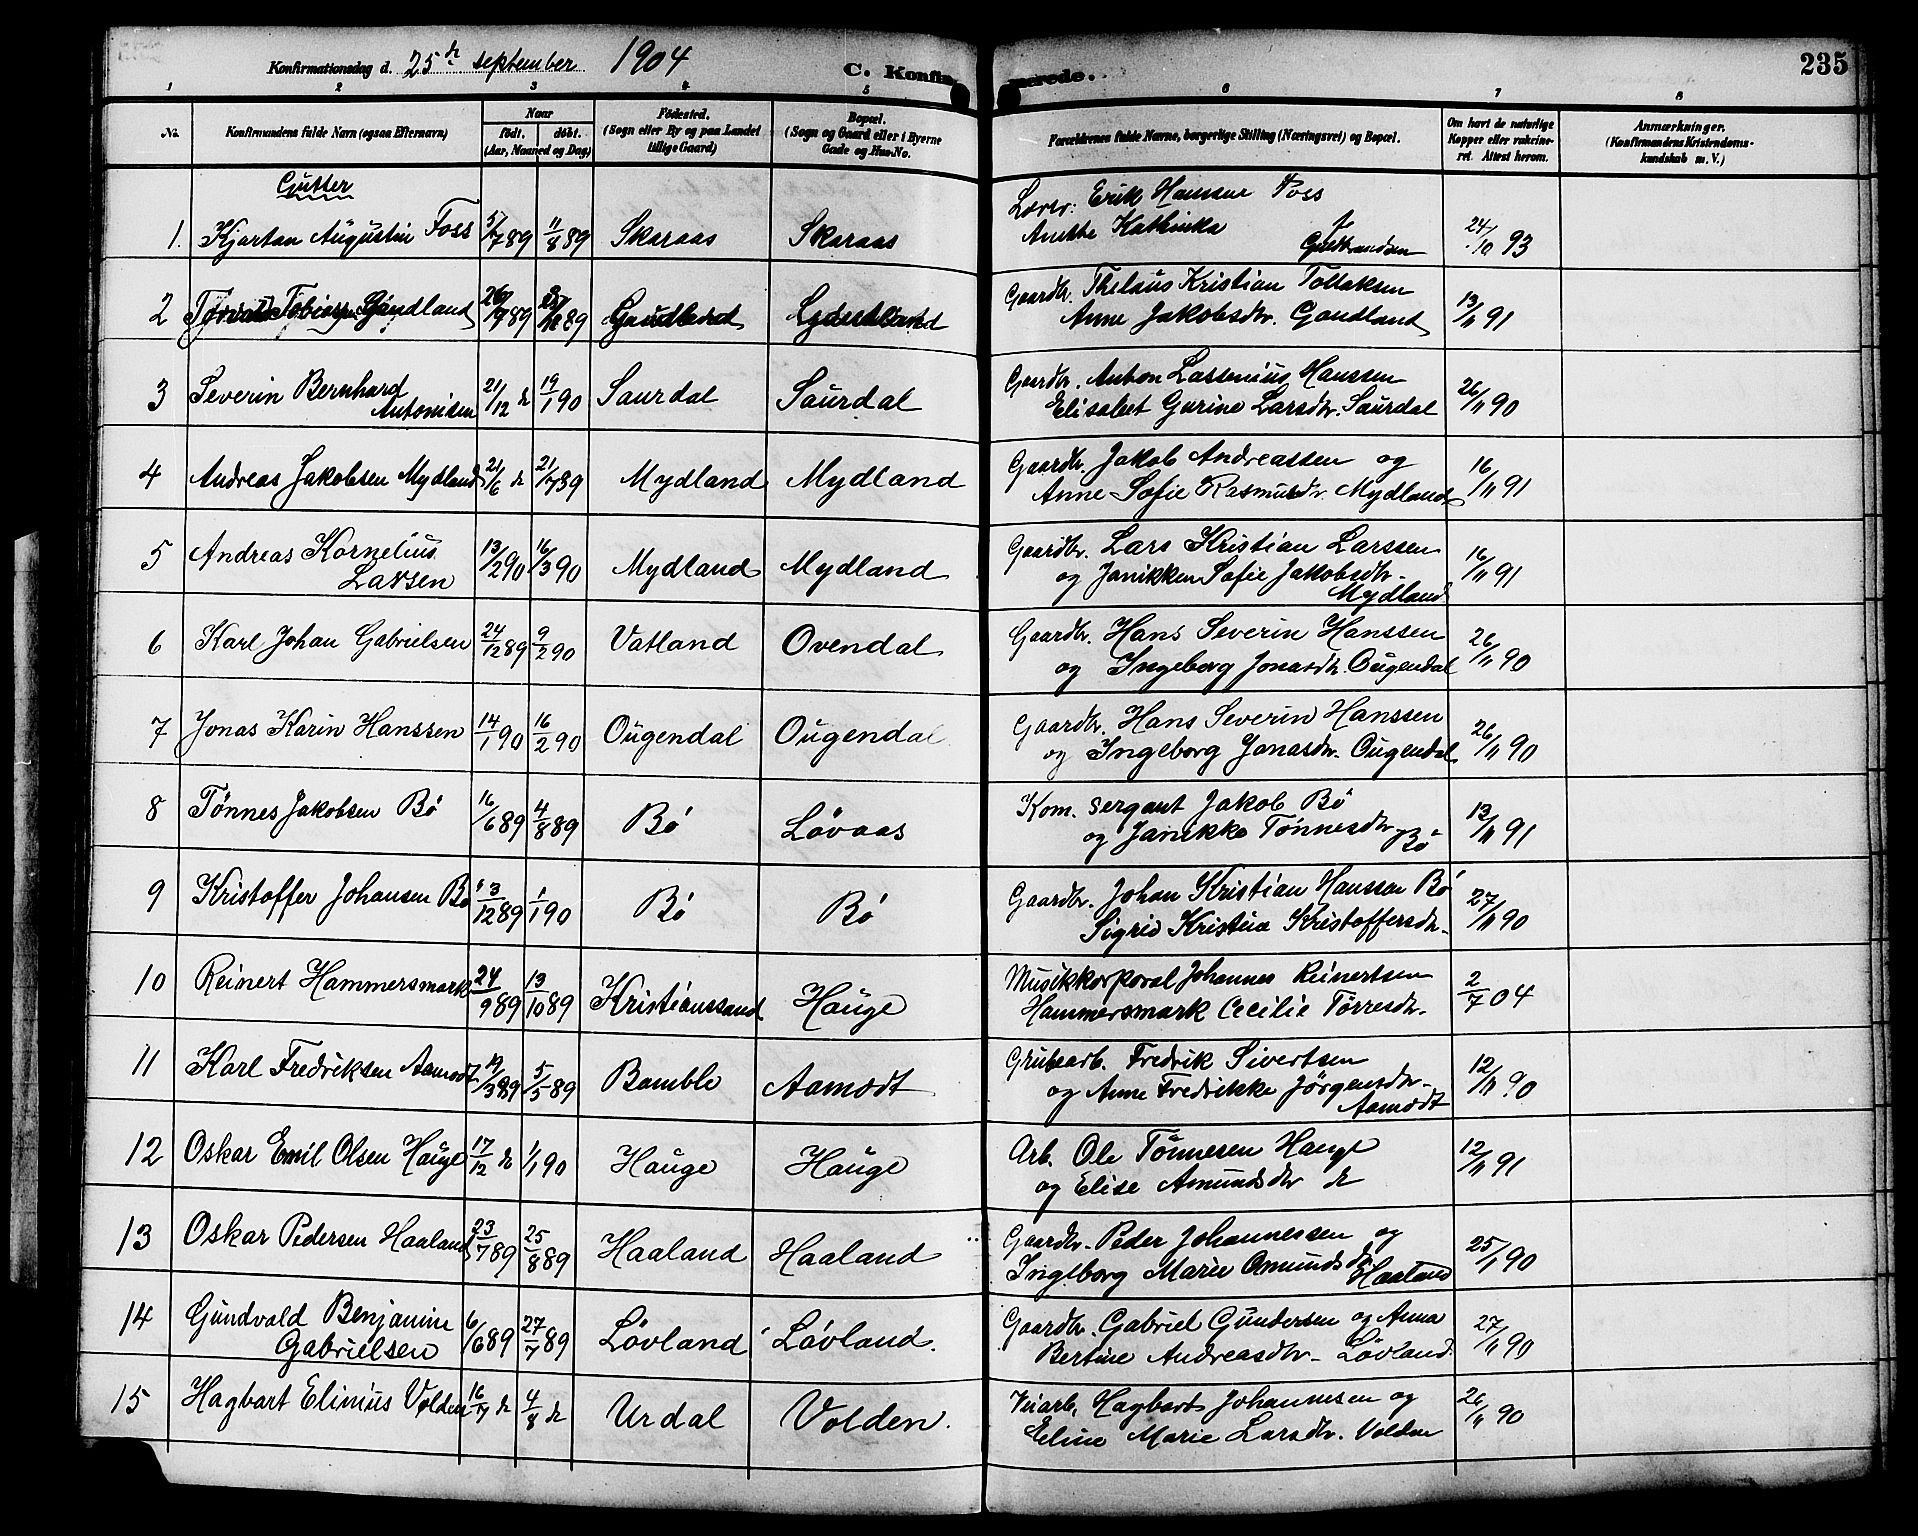 Konfirmationsdag d. 25de september 1904 C. Konfirmerede. 235
1 2 3 4 5 6 7 8
No. Konfirmandens fulde Navn (ogsaa Efternavn) Naar født. døbt. (Aar, Maaned og Dag) Fødested. (Sogn eller By og paa Landet tillige Gaard) Bopæl. (Sogn og Gaard eller i Byerne Gade og Hus-No. Forældrenes fulde Navne, borgerlige Stilling (Næringsvei) og Bopæl. Om havt de naturlige Kopper eller vakcineret. Attest herom. Anmærkninger. (Konfirmandens Kristendomskundskab m. V.)
Gutter
1. Kjartan Augustin Foss 5/7 89 11/8 89 Skaraas Skaraas Lærer: Erik Hansen Foss
Anette Kathinka Gulbrandsen 24/10 93
2 Tobias Gandland 89 89 Gaudland Gaardbr. Thelaus Kristian Tollaksen
Anne Jakobsdtr. Gandland 13/11 91
3 Severin Bernhard
Antonisen 21/12 d 19/1 90 Saurdal Saurdal Gaardbr. Anton Lassenius Hanssen
Elisabet Gurine Larsdtr. Saurdal 26/11 90
4 Andreas Jakobsen Mydland 21/6 d 21/7 89 Mydland Mydland Gaardbr. Jakob Andreassen og
Anne Sofie Rasmusdr. Mydland 16/11 91
5 Andreas Kornelius
Larsen 13/2 90 16/3 90 Mydland Mydland Gaardbr. Lars Kristian Larssen
og Janikken Sofie Jakobsdtr.
Mydland 16/11 91
6 Karl Johan Gabrielsen 24/12 89 9/2 90 Vatland Ovendal Gaardbr. Hans Severin Hanssen
og Ingeborg Jonasdtr. Ougendal 26/11 90
7 Jonas Karin Hanssen 14/1 90 16/2 90 Ougendal Ougendal Gaardbr. Hans Severin Hanssen
og Ingeborg Jonasdtr. Ougendal 26/11 90
8 Tønnes Jakobsen Bø 16/6 89 4/8 89 Bø Løvaas Kom. sergant Jakob Bø
og Janikke Tønnesdtr Bø 13/11 91
9 Kristoffer Johansen Bø 13/12 89 1/1 90 Bø Bø Gaardbr. Johan Kristian Hanssen Bø
Sigrid Kristine Kristoffersdtr. 27/11 90
10 Reinert Hammersmark 24/9 89 13/10 89 Kristianssand Hauge Musikkorporal Johannes Reinertsen
Hammersmark Cecilie Torresdtr. 2/7 04
11 Karl Fredriksen Aamodt 19/3 89 5/5 89 Bamble Aamodt Grubearb. Fredrik Sivertsen
og Anne Fredrikke Jørgensdtr.
Aamodt 12/11 90
12 Oskar Emil Olsen Hauge 17/12 d 1/1 90 Hauge Hauge Arb. Ole Tønnesen Hauge
og Elise Amundsdtr d 12/11 91
13 Oskar Pedersen Haaland 23/7 89 25/8 89 Haaland Haaland Gaardbr. Peder Johannessen og
Ingeborg Marie Omundsdtr Haaland 25/1 90
14 Gundvald Benjamin
Gabrielsen 6/6 89 27/7 89 Løvland Løvland. Gaardbr. Gabriel Gundersen og Anna
Bertine Andreasdtr. Løvland. 27/11 90
15 Hagbart Elinius Volden 16/7 d 4/8 d Urdal Volden. Veiarb. Hagbart Johannesen og
Eline Marie Larsdtr. Volden 26/11 90